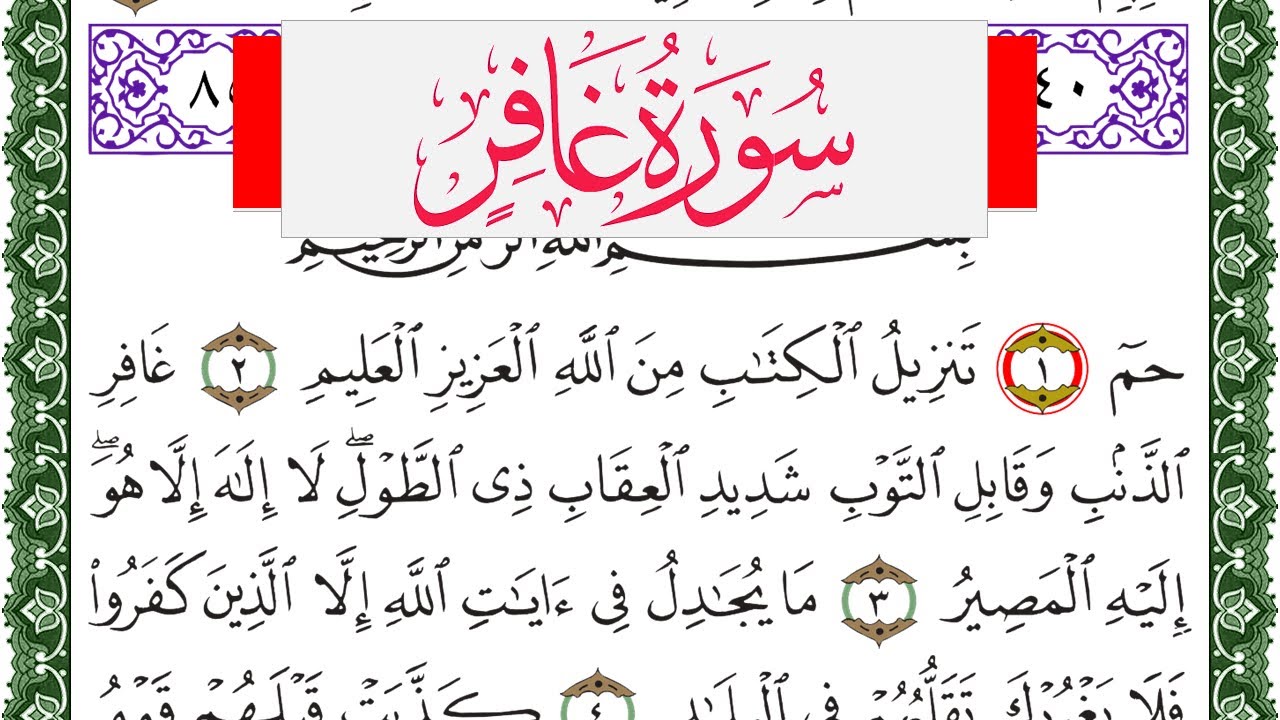 ٤٠
سُورَةُ غَافِرٍ
حمٓ ١ تَنزِيلُ ٱلْكِتَـٰبِ مِنَ ٱللَّهِ ٱلْعَزِيزِ ٱلْعَلِيمِ ٢ غَافِرِ
ٱلذَّنۢبِ وَقَابِلِ ٱلتَّوْبِ شَدِيدِ ٱلْعِقَابِ ذِى ٱلطَّوْلِۖ لَآ إِلَـٰهَ إِلَّا هُوَۖ
إِلَيْهِ ٱلْمَصِيرُ ٣ مَا يُجَـٰدِلُ فِىٓ ءَايَـٰتِ ٱللَّهِ إِلَّا ٱلَّذِينَ كَفَرُوا۟
فَلَا يَغْرُرْكَ تَقَلُّبُهُمْ فِى ٱلْبِلَـٰدِ ٤ كَذَّبَتْ قَبْلَهُمْ قَوْمُ